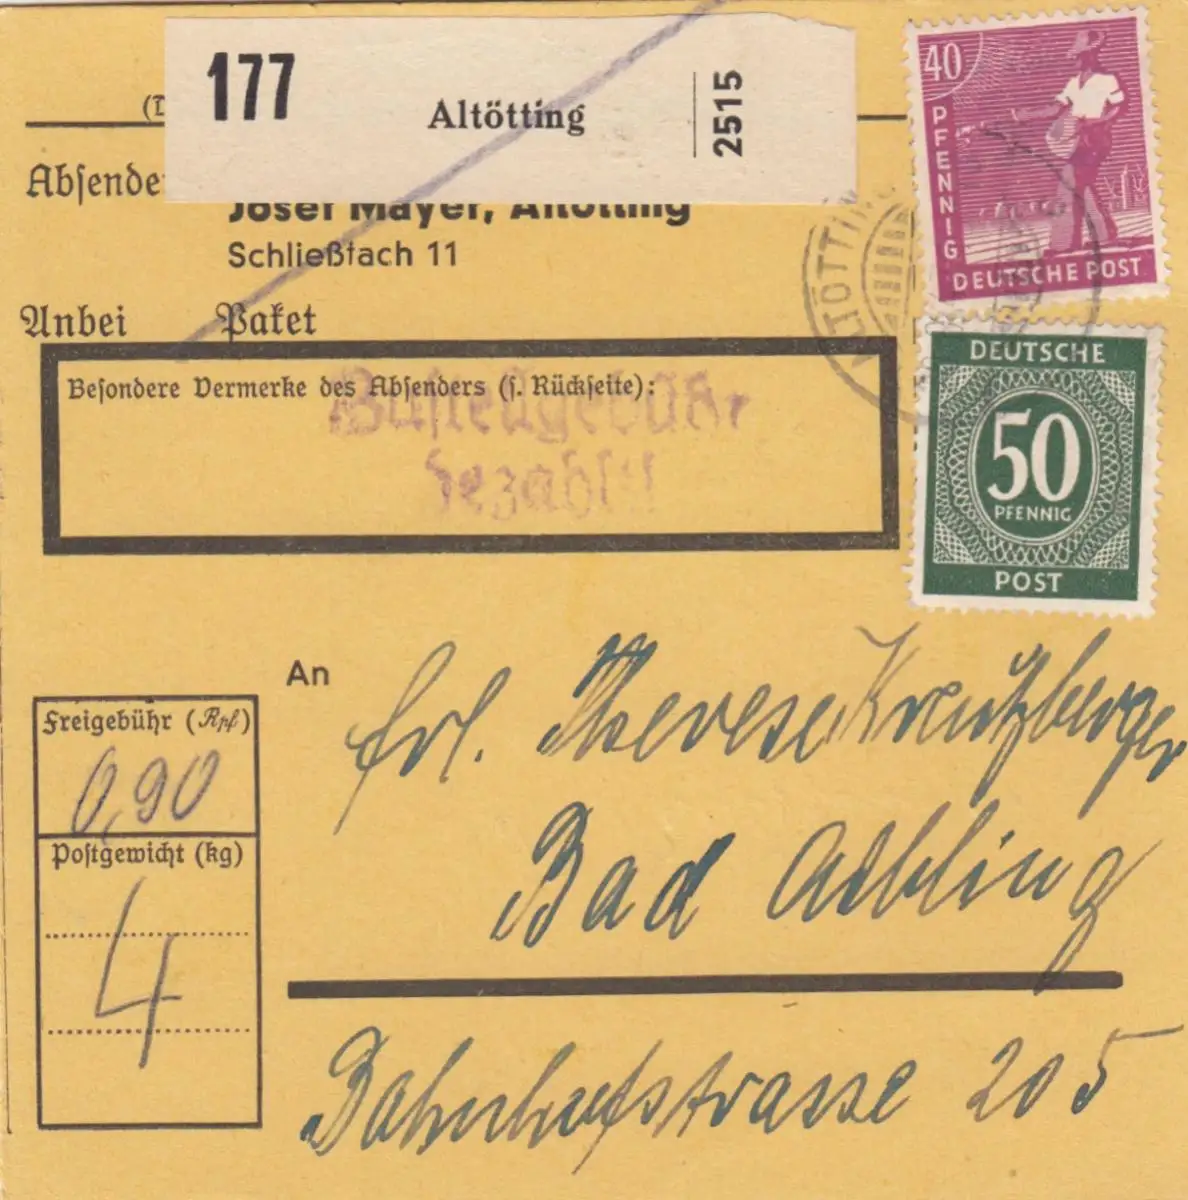 177
Altötting
2515
Absender
Josef Mayer, Altötting
Schließfach 11
Anbei Paket
Besondere Vermerke des Absenders (s. Rückseite):
Zustellgebühr
bezahlt!
40
PFENNIG
DEUTSCHE POST
ALTÖTTING
DEUTSCHE
50
PFENNIG
POST
An
Frl. Therese Kreutzberger
Bad Aibling
Bahnhofstrasse 205
Freigebühr (Rpf)
0,90
Postgewicht (kg)
4